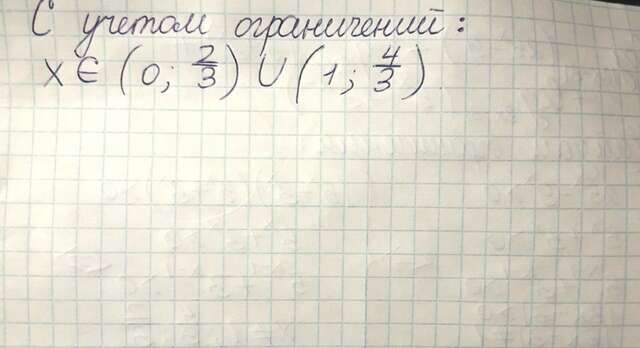 С учетом ограничений:
x ∈ (0; 2/3) ∪ (1; 4/3).